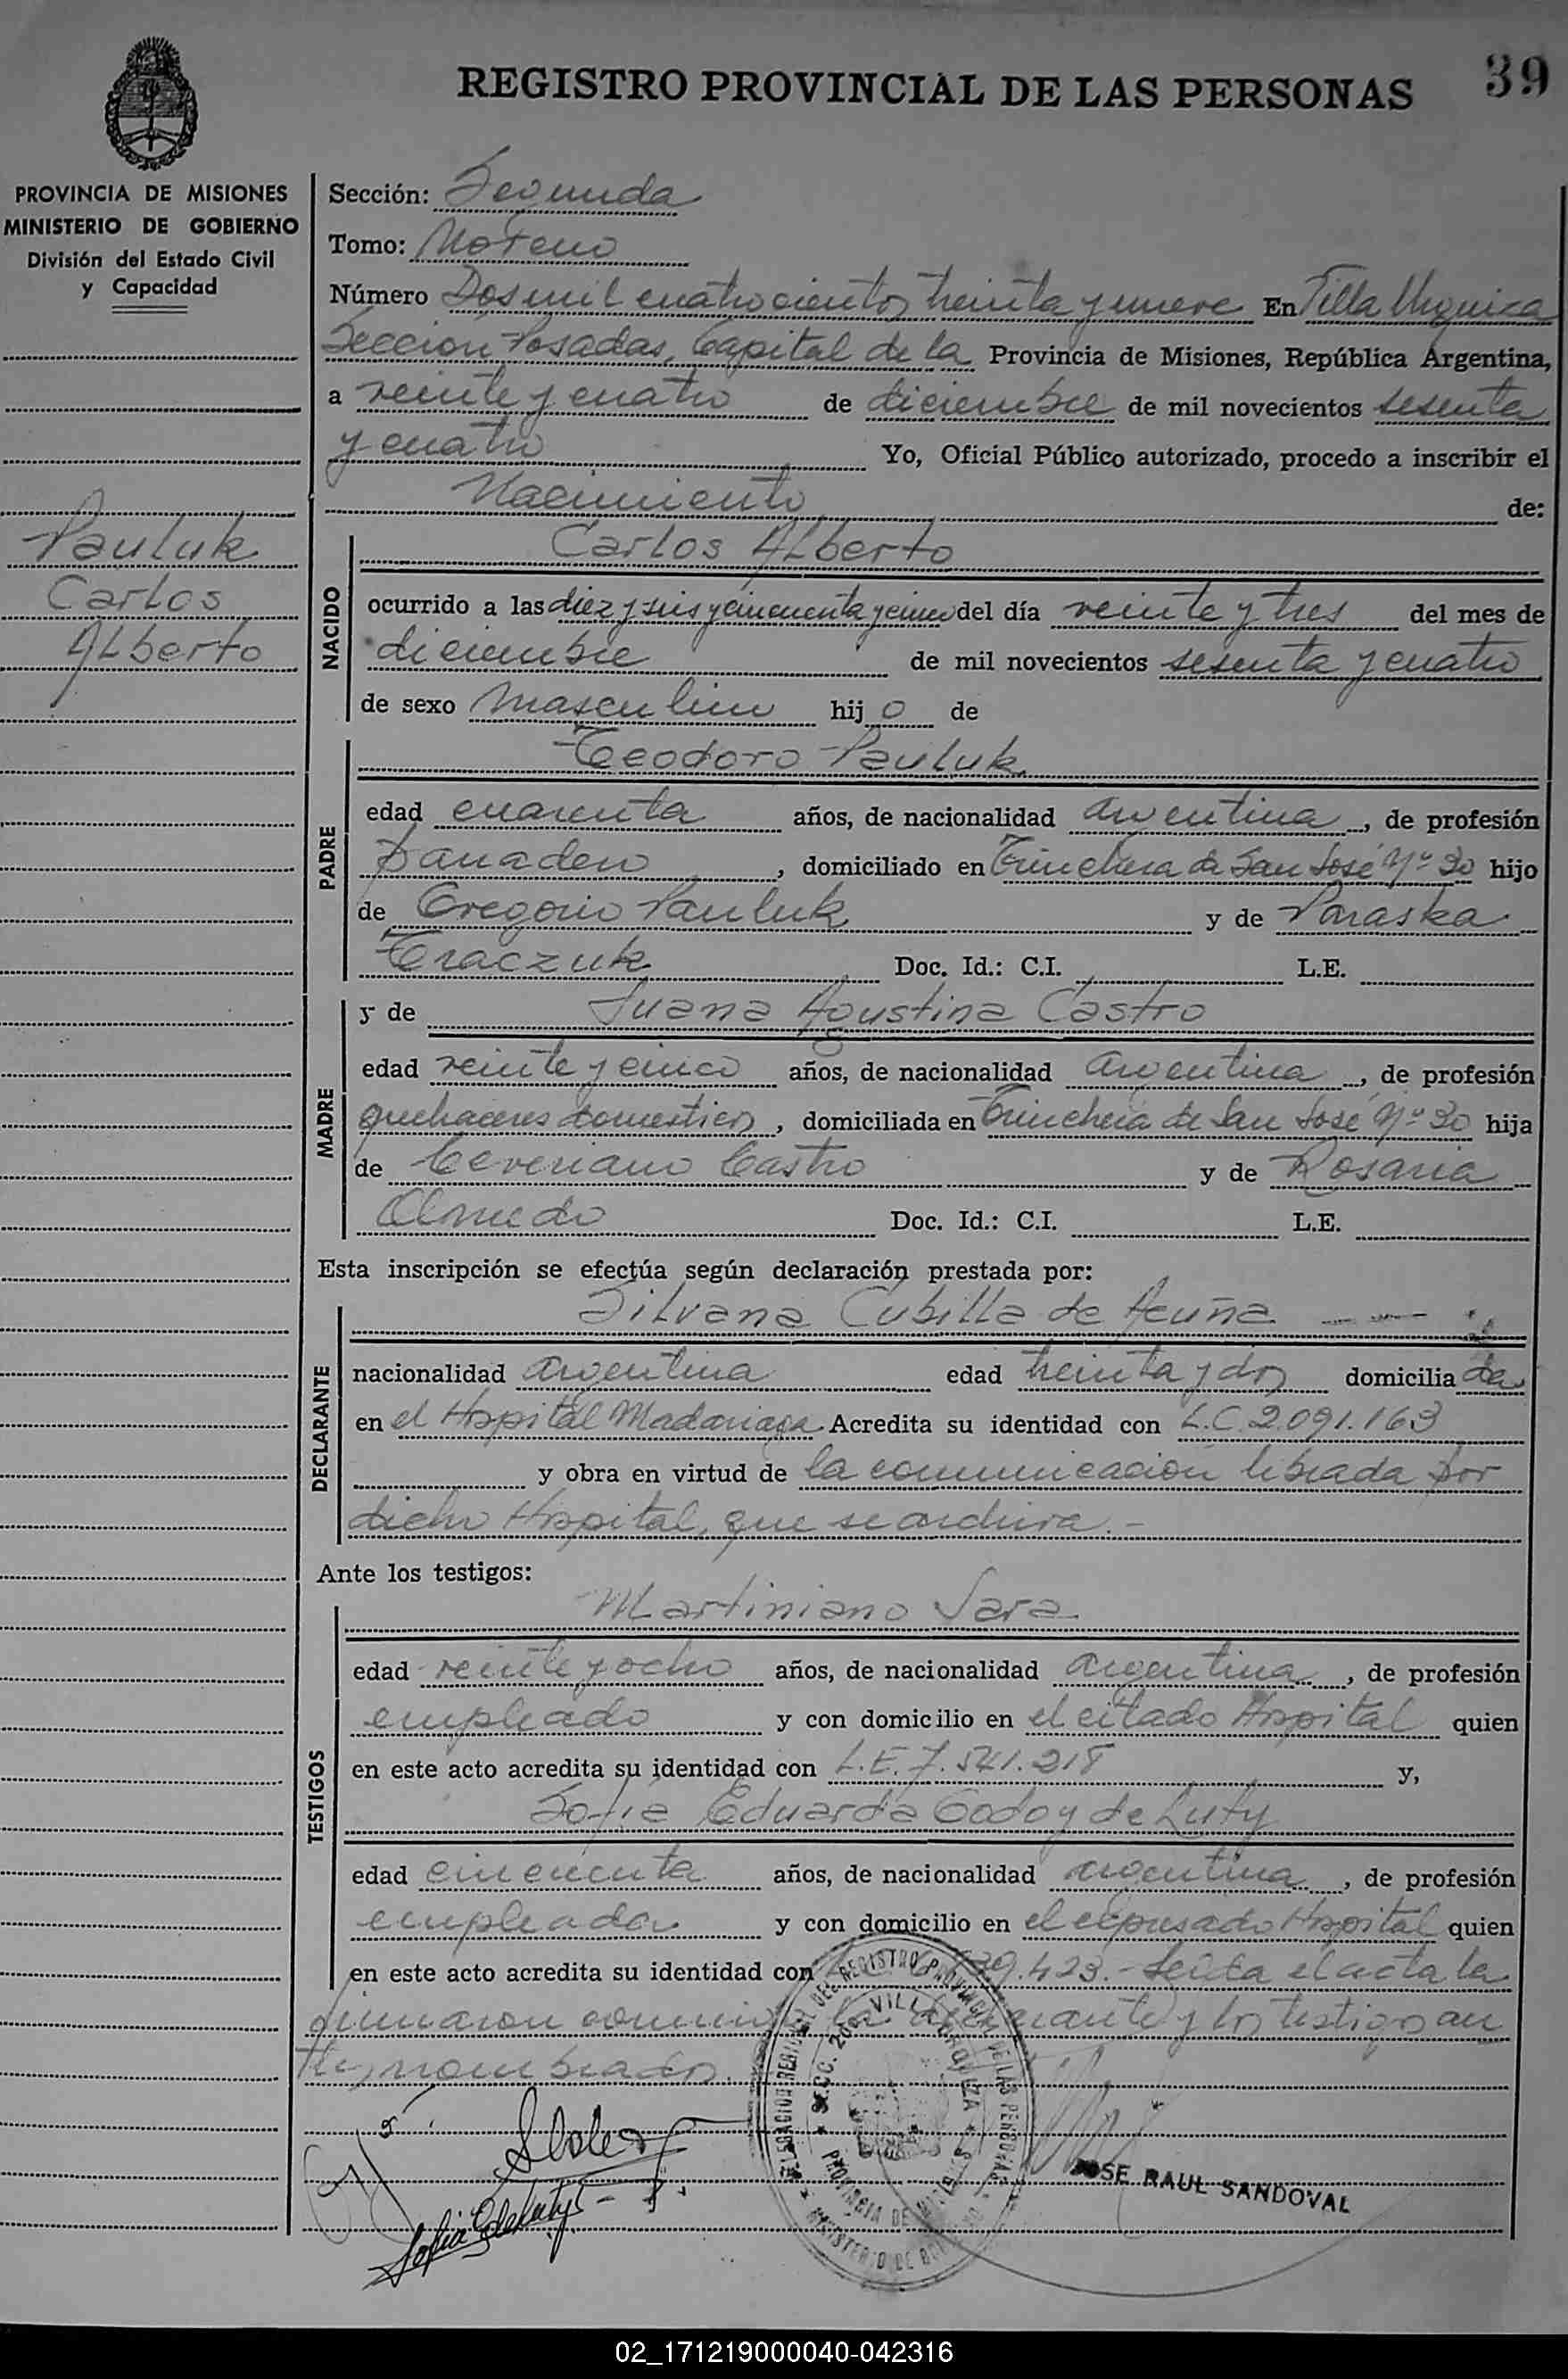 39
REGISTRO PROVINCIAL DE LAS PERSONAS
PROVINCIA DE MISIONES
MINISTERIO DE GOBIERNO
División del Estado Civil
y Capacidad
Pauluk
Carlos
Alberto
Sección: Segunda
Tomo: Noveno
Número Dos mil cuatrocientos treinta y nueve En Villa Urquiza
Sección Posadas, Capital de la Provincia de Misiones, República Argentina,
a veinte y cuatro de diciembre de mil novecientos sesenta
y cuatro Yo, Oficial Público autorizado, procedo a inscribir el
Nacimiento de:
NACIDO
Carlos Alberto
ocurrido a las diez y seis y cincuenta y cinco del día veinte y tres del mes de
diciembre de mil novecientos sesenta y cuatro
de sexo masculino hij o de
PADRE
Teodoro Pauluk
edad cuarenta años, de nacionalidad argentina, de profesión
panadero, domiciliado en Trinchera de San José Nº 30 hijo
de Gregorio Pauluk y de Paraska
Traczuk Doc. Id.: C.I. L.E.
MADRE
y de Juana Agustina Castro
edad veinte y cinco años, de nacionalidad argentina, de profesión
quehaceres domesticos, domiciliada en Trinchera de San José Nº 30 hija
de Ceveriano Castro y de Rosaria
Olmedo Doc. Id.: C.I. L.E.
Esta inscripción se efectúa según declaración prestada por:
DECLARANTE
Silvana Cubilla de Acuña
nacionalidad argentina edad treinta y dos domicilia da
en el Hospital Madariaga Acredita su identidad con L.C. 2.091.163
y obra en virtud de la comunicación librada por
dicho Hospital, que se archiva.-
Ante los testigos:
TESTIGOS
Martiniano Jara
edad veinte y ocho años, de nacionalidad argentina, de profesión
empleado y con domicilio en el citado Hospital quien
en este acto acredita su identidad con L.E. 7.541.218 y,
Sofia Eduarda Godoy de Luty
edad cincuenta años, de nacionalidad argentina, de profesión
empleada y con domicilio en el expresado Hospital quien
en este acto acredita su identidad con 39.423.- Leída el acta la
firmaron conmigo la y los testigos an
tes nombrados.
DELEGACION REGIONAL DEL REGISTRO PROVINCIAL DE LAS PERSONAS
SECC. 2da. VILLA URQUIZA
PROVINCIA DE MISIONES
MINISTERIO DE GOBIERNO
JOSE RAUL SANDOVAL
02_171219000040-042316